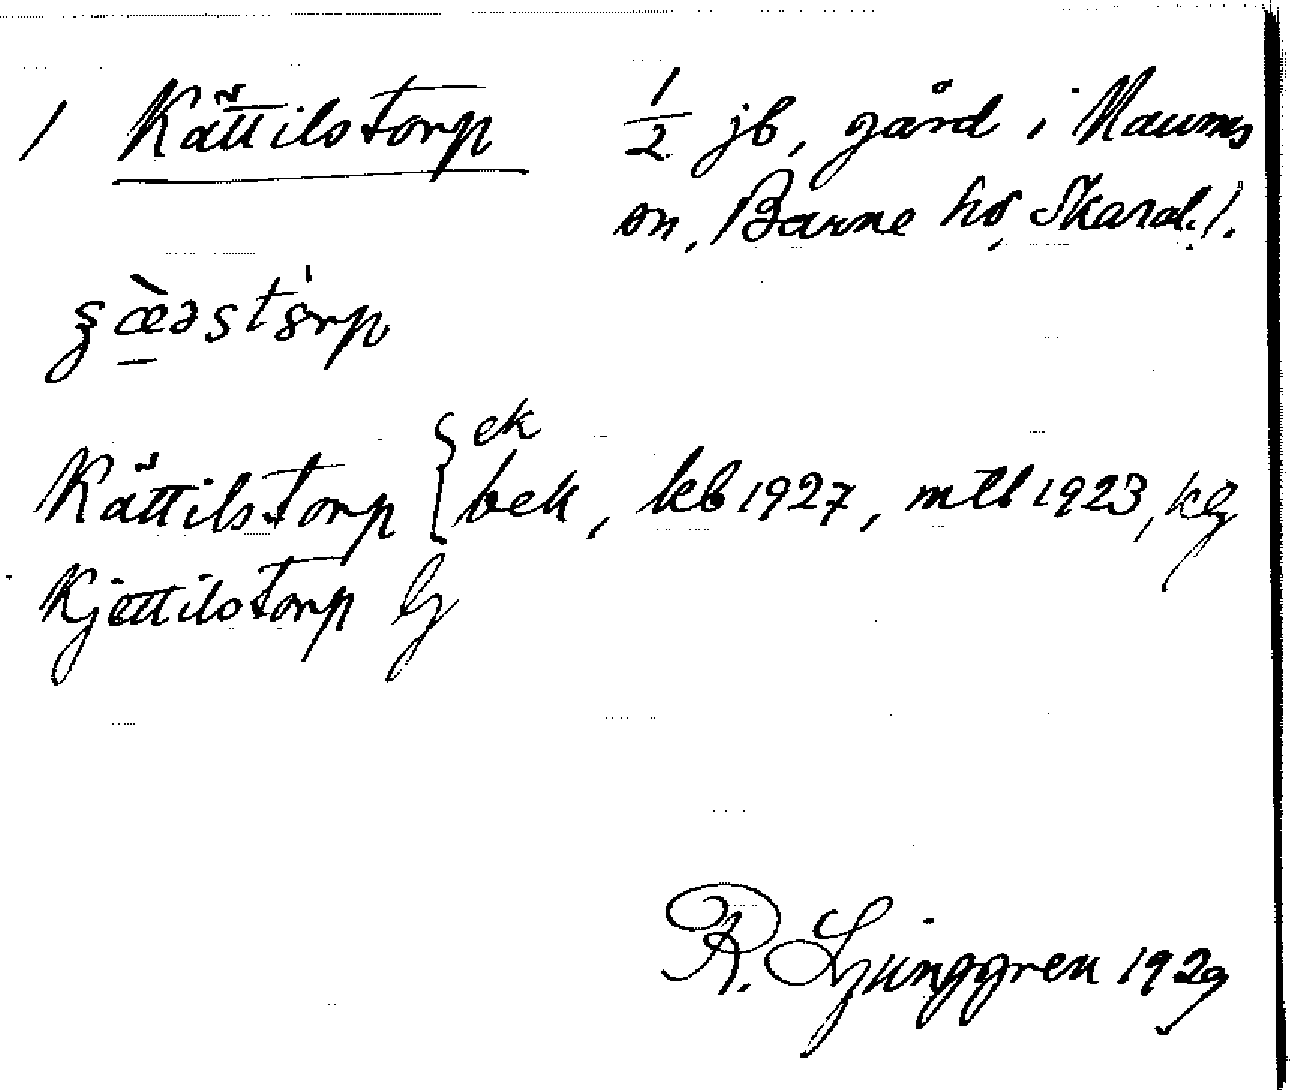 1 Kättilstorp 1/2 jb, gård i Naums
sn, Barne hd, Skarab. l.
Kättilstorp { ek
bek, kb 1927, mtl 1923, kg
Kjettilstorp lj
R. Ljunggren 1929